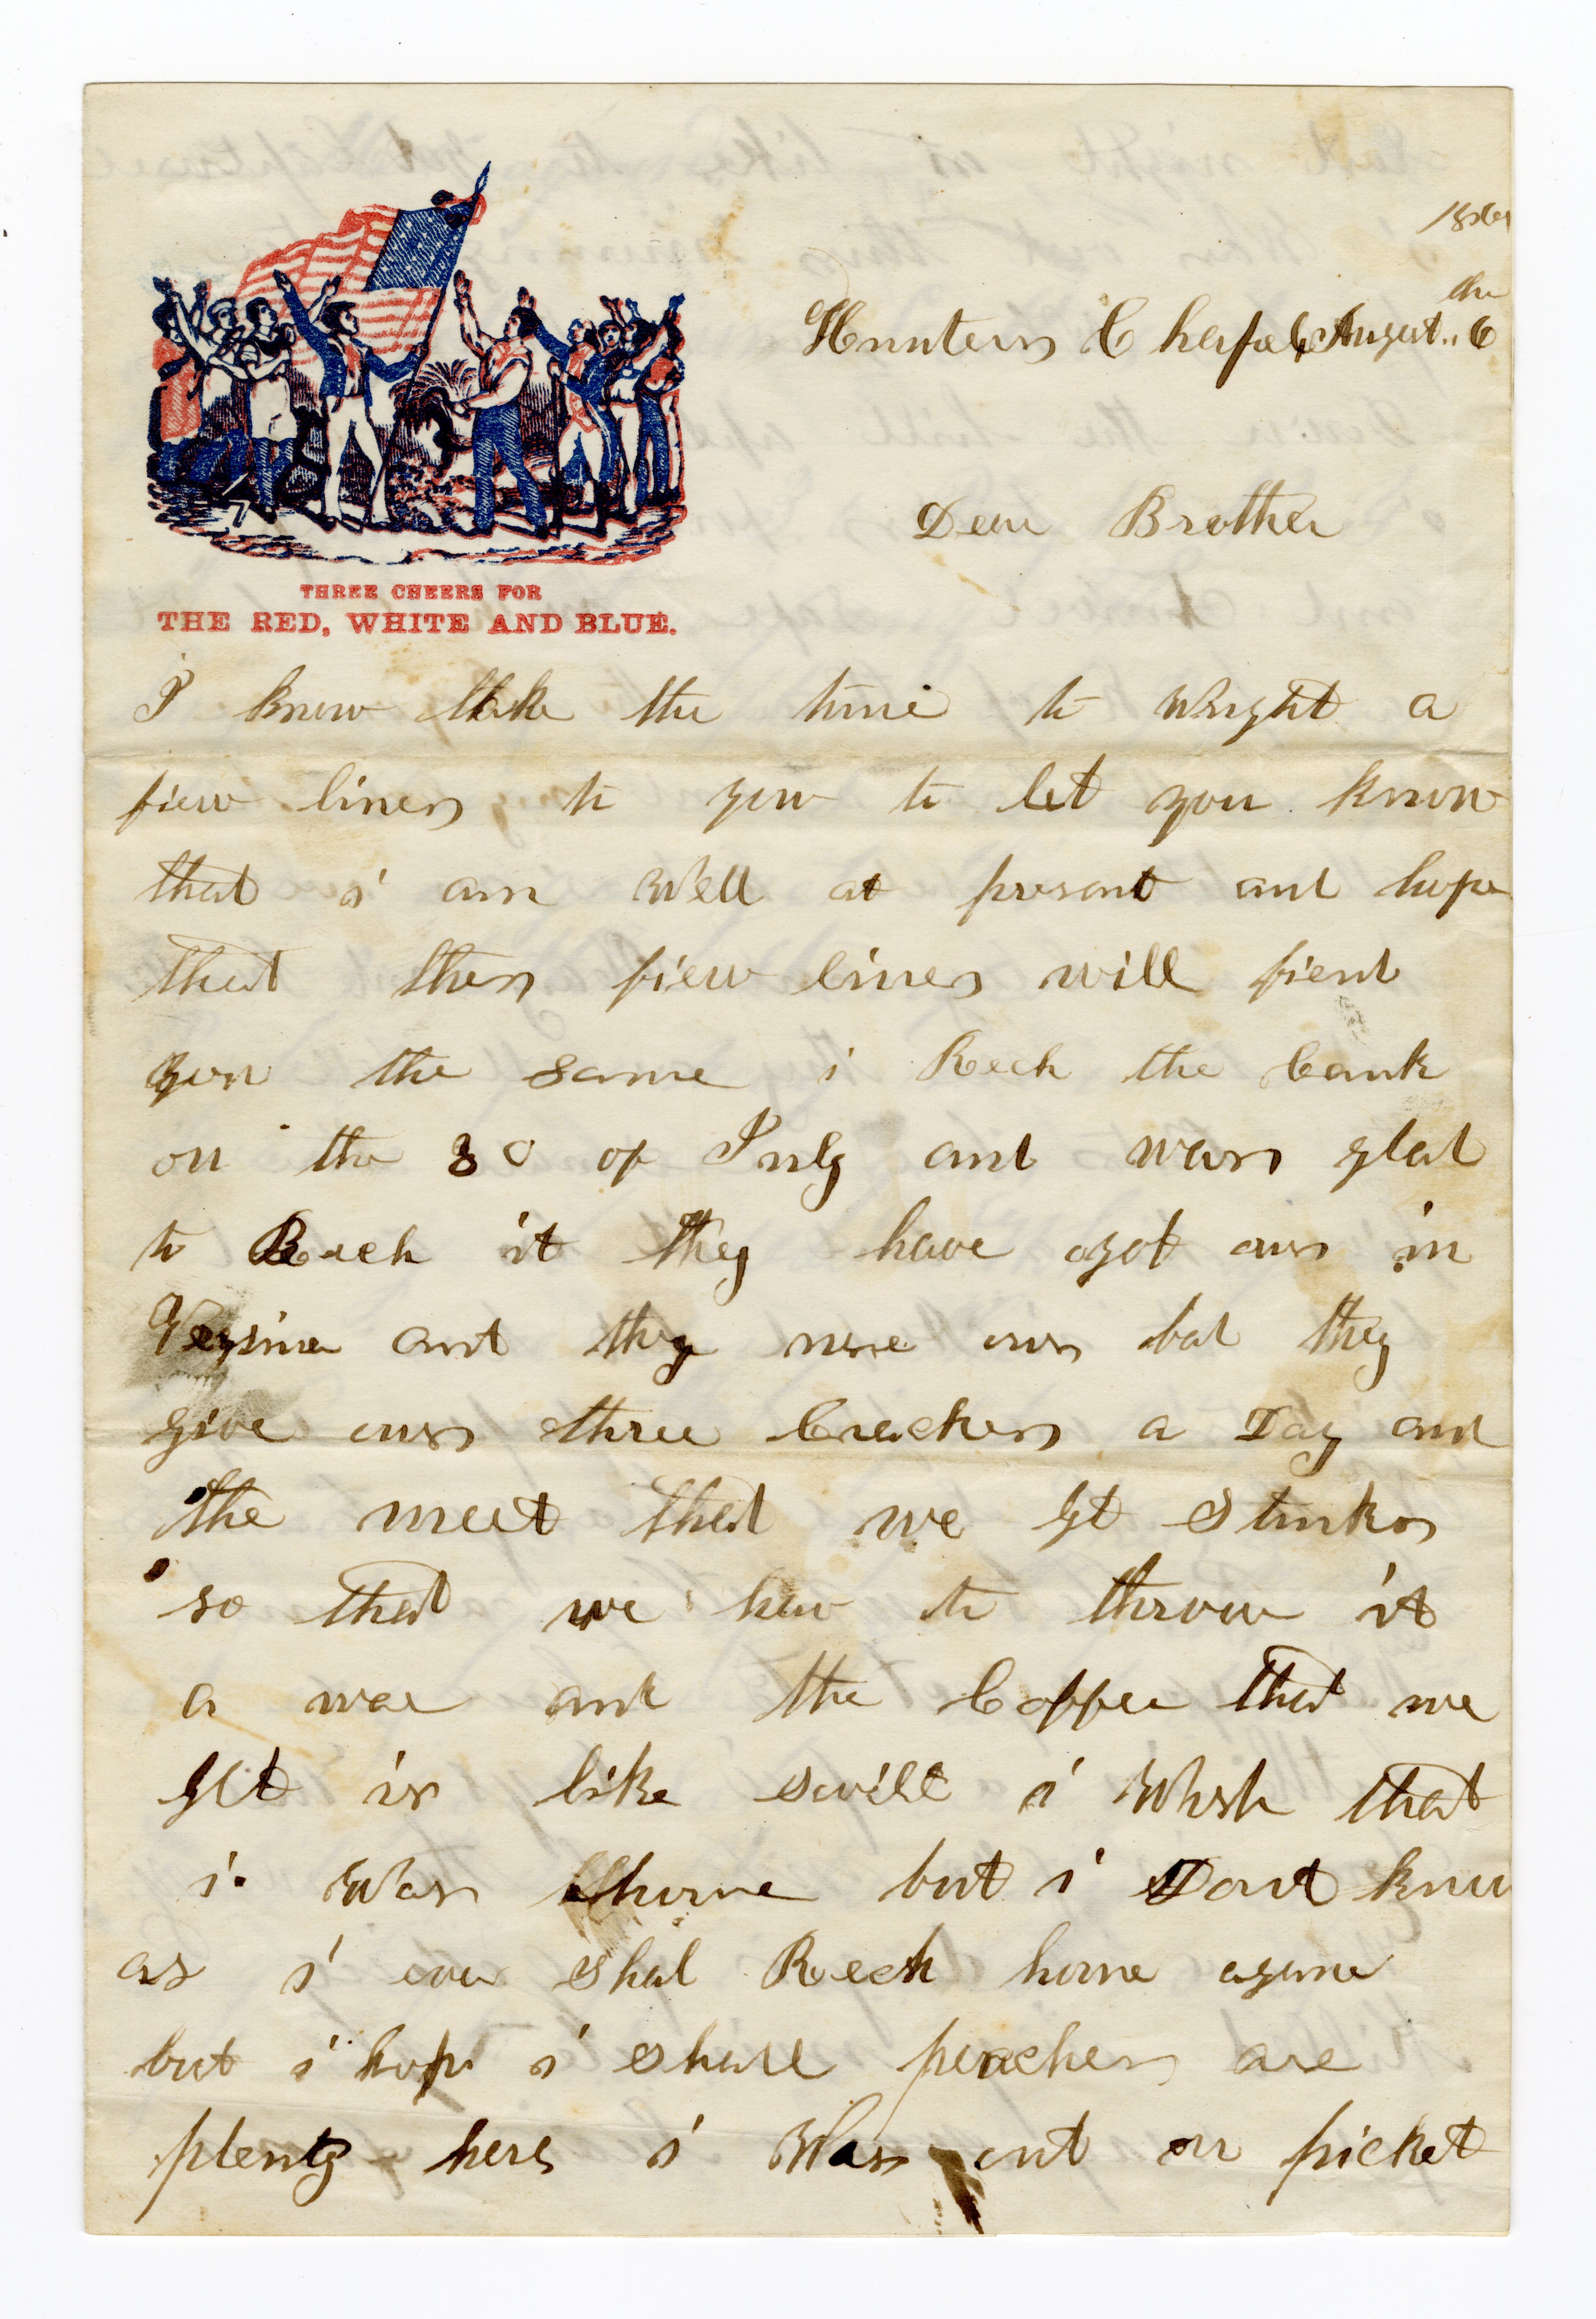 THREE CHEERS FOR
THE RED, WHITE AND BLUE.
1861
the
Hunters Chapel August 6
Dear Brother
I know take the time to wright a
fiew lines to you to let you know
that i am Well at present and hope
that thes fiew lines will fient
you the same i Rech the Camk
on the 30 of July and was glad
to Reach it they have got aus in
and they use aus bad they
give aus three Creckers a Day and
the meet that we get Stinks
so that we hav to throw it
a wae and the Coffee that we
get is like swill i Whsh that
i Was home but i Dont know
as i ever shal Rech home agane
but i hope i shall peaches are
plenty here i Was out on picket